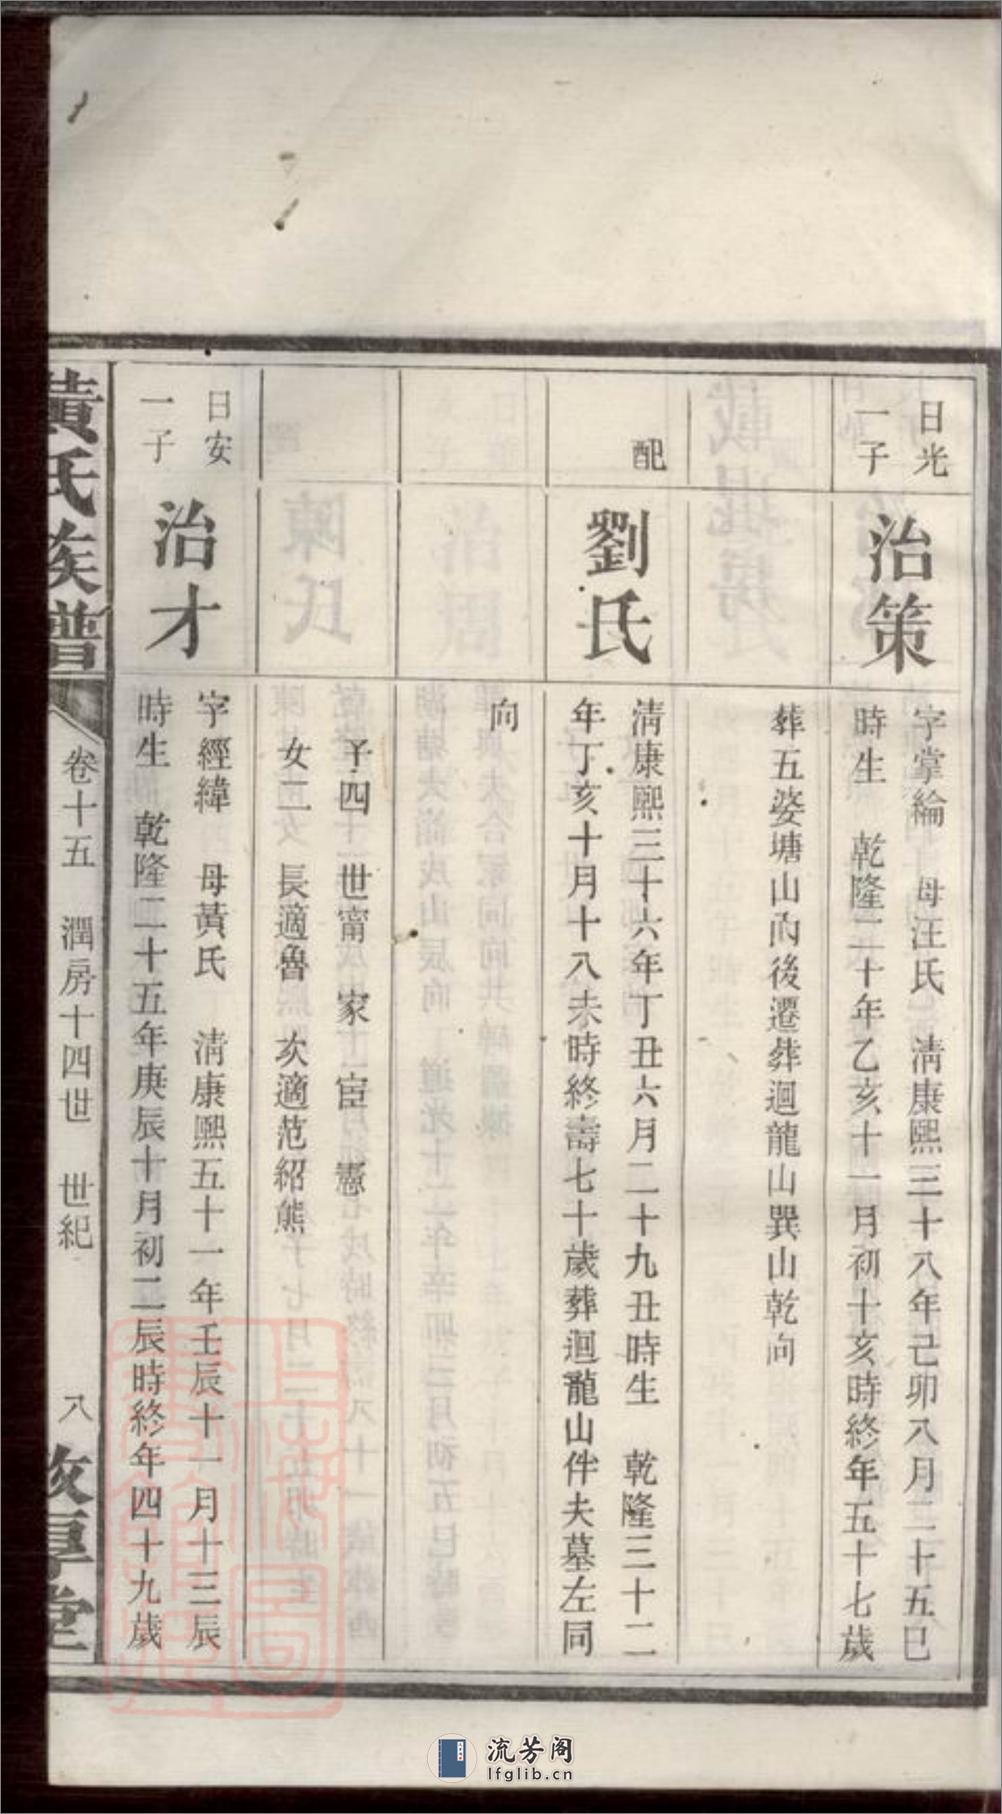 日光
一子
治策
字掌綸　母汪氏　清康熙三十八年己卯八月二十五巳
時生　乾隆二十年乙亥十一月初十亥時終年五十七歲
葬五婆塘山内後遷葬迴龍山巽山乾向
配
劉氏
清康熙三十六年丁丑六月二十九丑時生　乾隆三十二
年丁亥十月十八未時終壽七十歲葬迴龍山伴夫墓左同
向
子四　世甯　家　宦　憲
女二　長適魯　次適范紹熊
日安
一子
治才
字經緯　母黃氏　清康熙五十一年壬辰十一月十三辰
時生　乾隆二十五年庚辰十月初二辰時終年四十九歲
黃氏族譜
卷十五　潤房十四世　世紀
八
敦厚堂
流芳阁
lfglib.cn